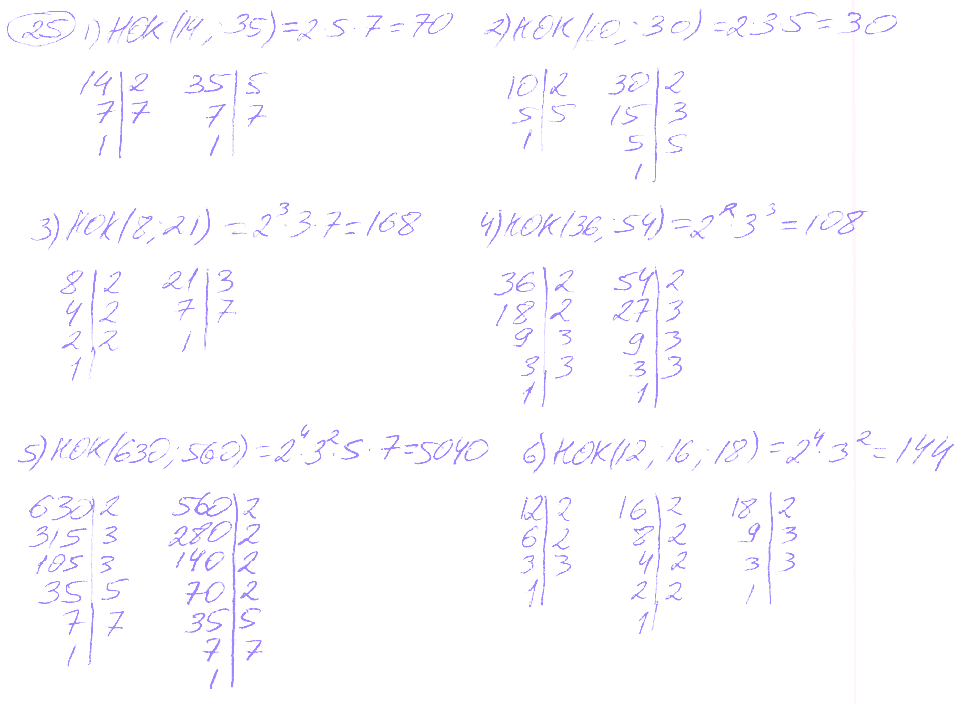 25 1) НОК(14; 35)=2·5·7=70 2) НОК(10; 30)=2·3·5=30
14|2 35|5 10|2 30|2
7|7 7|7 5|5 15|3
1| 1| 1| 5|5
1|
3) НОК(8; 21)=2³·3·7=168 4) НОК(36; 54)=2²·3³=108
8|2 21|3 36|2 54|2
4|2 7|7 18|2 27|3
2|2 1| 9|3 9|3
1| 3|3 3|3
1| 1|
5) НОК(630; 560)=2⁴·3²·5·7=5040 6) НОК(12; 16; 18)=2⁴·3²=144
630|2 560|2 12|2 16|2 18|2
315|3 280|2 6|2 8|2 9|3
105|3 140|2 3|3 4|2 3|3
35|5 70|2 1| 2|2 1|
7|7 35|5 1|
1| 7|7
1|